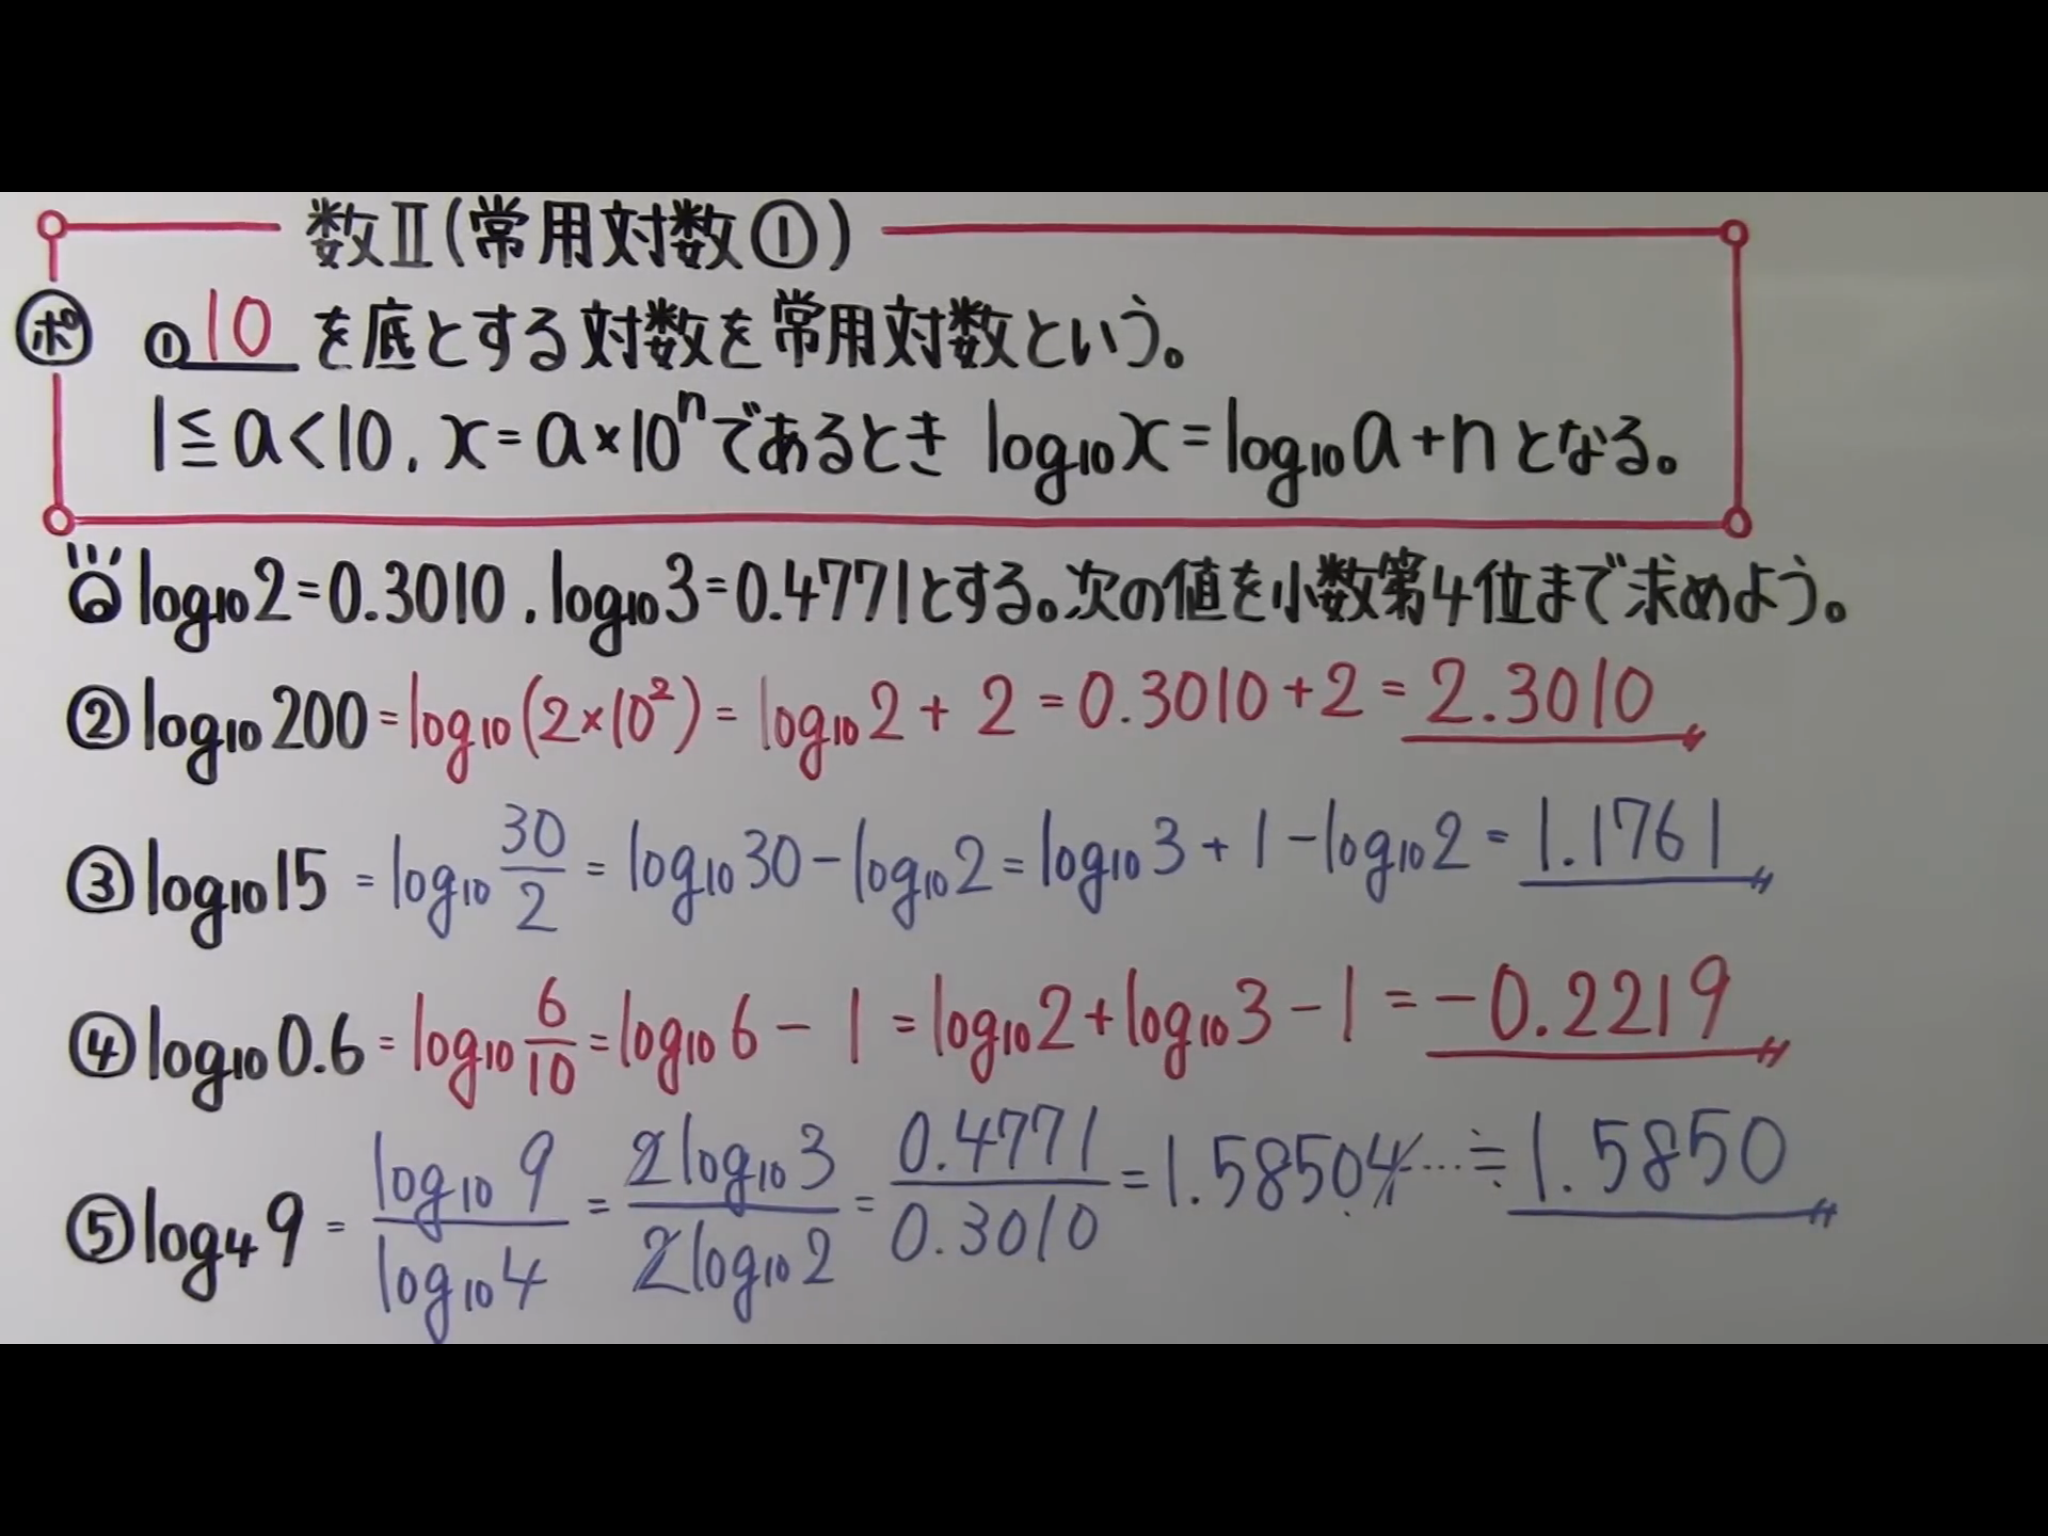 数Ⅱ(常用対数①)
ポ ①10を底とする対数を常用対数という。
1≦a<10, x=a×10ⁿであるとき log₁₀x=log₁₀a+nとなる。
log₁₀2=0.3010, log₁₀3=0.4771とする。次の値を小数第4位まで求めよう。
②log₁₀200=log₁₀(2×10²)=log₁₀2+2=0.3010+2=2.3010
③log₁₀15=log₁₀30/2=log₁₀30-log₁₀2=log₁₀3+1-log₁₀2=1.1761
④log₁₀0.6=log₁₀6/10=log₁₀6-1=log₁₀2+log₁₀3-1=-0.2219
⑤log₄9=log₁₀9/log₁₀4=2log₁₀3/2log₁₀2=0.4771/0.3010=1.58504…≒1.5850